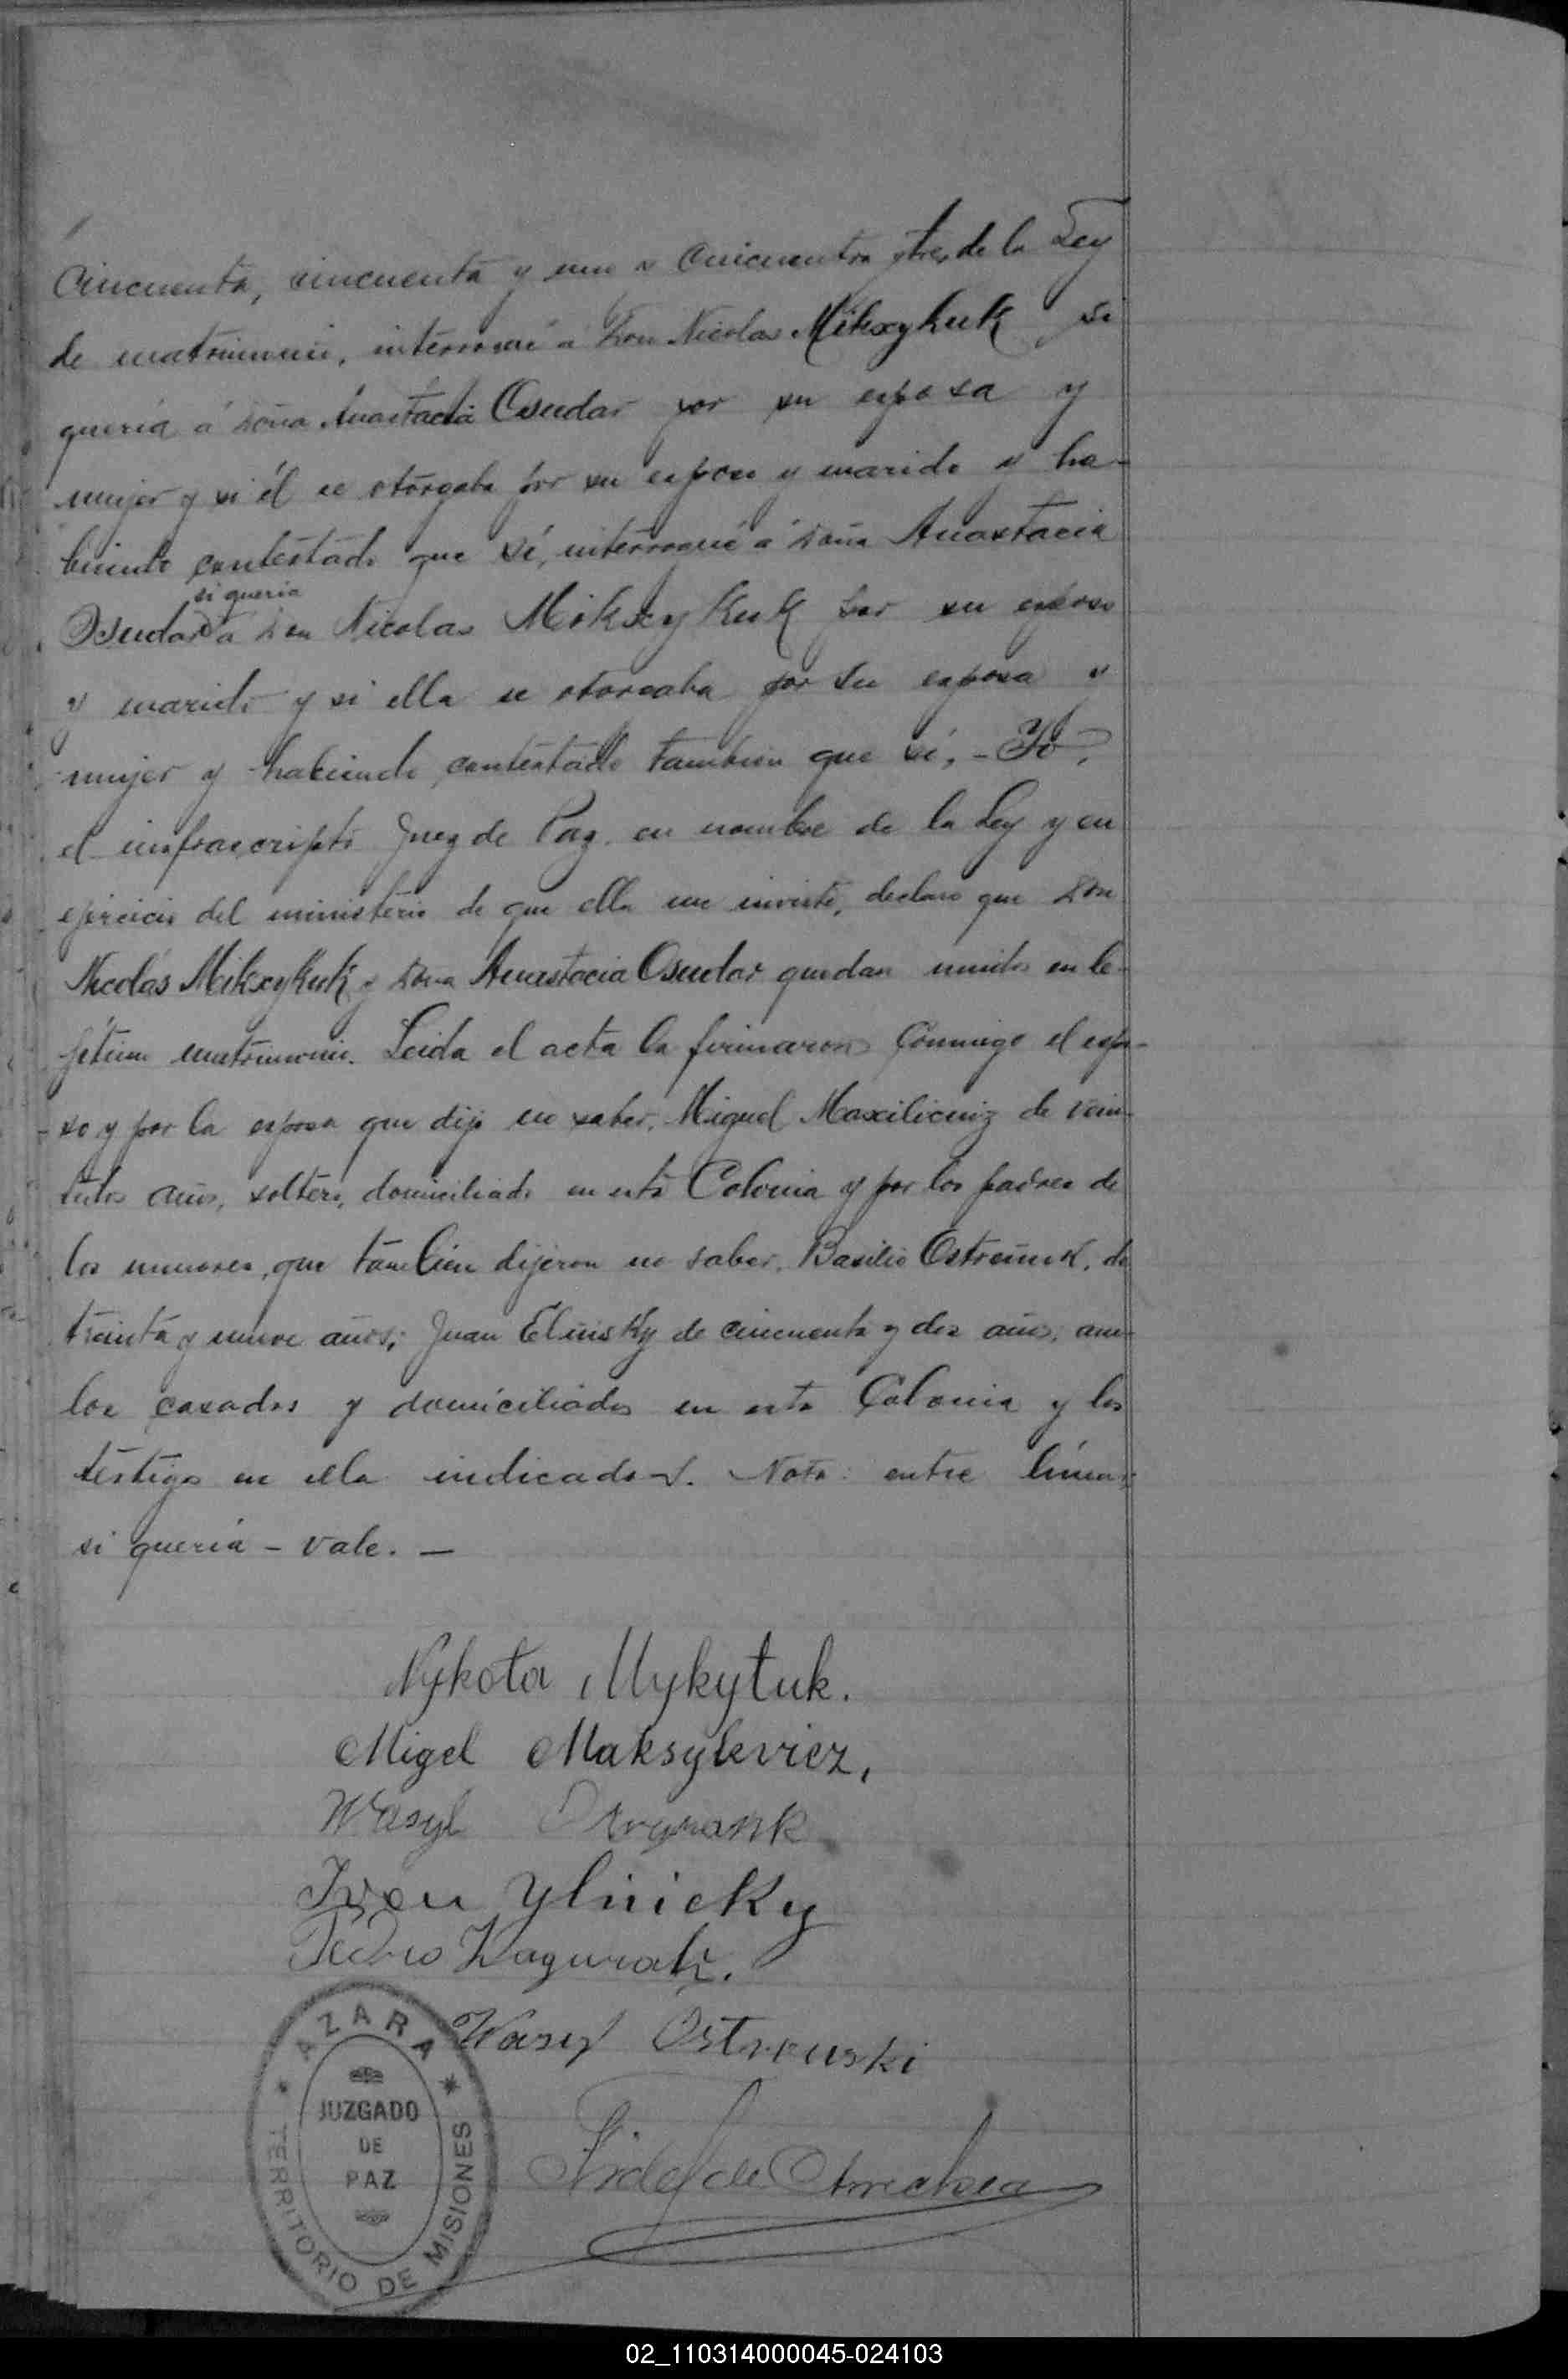 Cincuenta, cincuenta y uno y Cincuenta y tres de la Ley
de matrimonio, interrogué á Don Nicolas Mikxykuk si
quería á Doña Anastacia Osudar por su esposa y
mujer y si él se otorgaba por su esposo y marido y ha-
biendo contestado que sí, interrogué á Doña Anastacia
si queria
Osudar á Don Nicolas Mikxykuk por su esposo
y marido y si ella se otorgaba por su esposa y
mujer y habiendo contestado tambien que sí, - Yo,
el infrascripto Juez de Paz, en nombre de la Ley y en
ejercicio del ministerio de que ella me inviste, declaro que Don
Nicolás Mikxykuk y Doña Anastacia Osudar quedan unidos en le-
gítimo matrimonio. Leida el acta la firmaron conmigo el espo-
so y por la esposa que dijo no saber, Miguel Maxilicuiz de vein-
tidos años, soltero, domiciliado en esta Colonia y por los padres de
los menores, que tambien dijeron no saber, Basilio de
treinta y nueve años; Juan Elinisky de cincuenta y dos años, am-
bos casados y domiciliados en esta Colonia y los
testigos en ella indicados. Nota: entre líneas;
si queria - vale. -
Nykota Mykytuk.
Migel Maksylevicz,
Wasyl
Ivan Ylnicky
Pedro
Wasyl Ostrouski
Fidel de Arrechea
AZARA
JUZGADO
DE
PAZ
TERRITORIO DE MISIONES
02_110314000045-024103